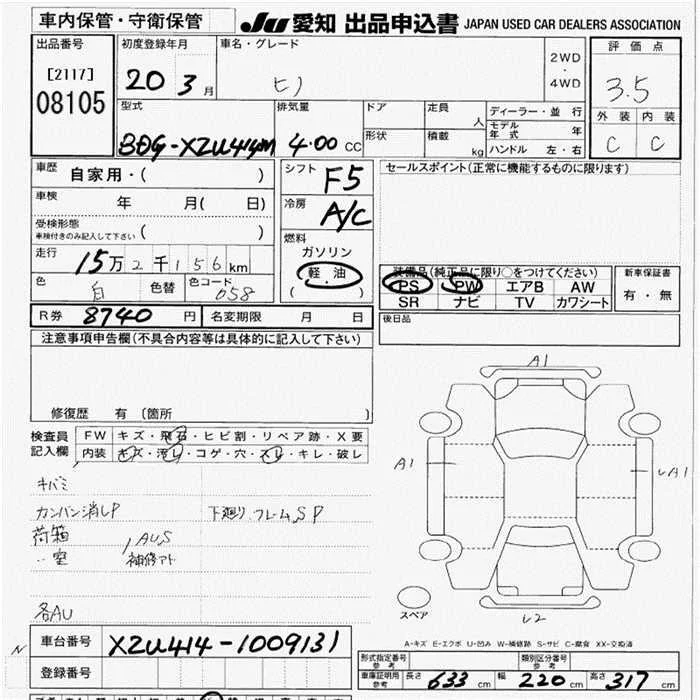 車内保管・守衛保管
JU 愛知 出品申込書 JAPAN USED CAR DEALERS ASSOCIATION
出品番号
[2117]
08105
初度登録年月
20 3月
車名・グレード
ヒノ
2WD
・
4WD
評価点
3.5
外装 内装
C C
型式
BDG-XZU414M
排気量
4.00 CC
ドア
定員
人
形状
積載
kg
ディーラー・並行
モデル年式 年
ハンドル 左・右
車歴
自家用・( )
車検
年 月( 日)
受検形態
車検付きのみ記入して下さい ( )
走行
15万2千156km
色
白
色替
色コード
058
シフト
F5
冷房
A/C
燃料
ガソリン
軽・油
( )
セールスポイント(正常に機能するものに限ります)
装備品(純正品に限り○をつけてください)
PS PW エアB AW
SR ナビ TV カワシート
新車保証書
有・無
後日品
R券 8740 円
名変期限 月 日
注意事項申告欄(不具合内容等は具体的に記入して下さい)
修復歴 有 〔箇所 〕
検査員記入欄
FW キズ・飛石・ヒビ割・リペア跡・X要
内装 キズ・汚レ・コゲ・穴・スレ・キレ・破レ
キバミ
カンバン消しP
下廻り、フレームSP
荷箱
〃室
AUS
補修アト
各AU
A1
A1
A1
L2
スペア
A-キズ E-エクボ U-凹み W-補修跡 S-サビ C-腐食 XX-交換済
車台番号 XZU414-1009131
登録番号
形式指定番号
参考
類別区分番号
参考
車庫証明用
参考
長さ 633 cm
幅 220 cm
高さ 317 cm